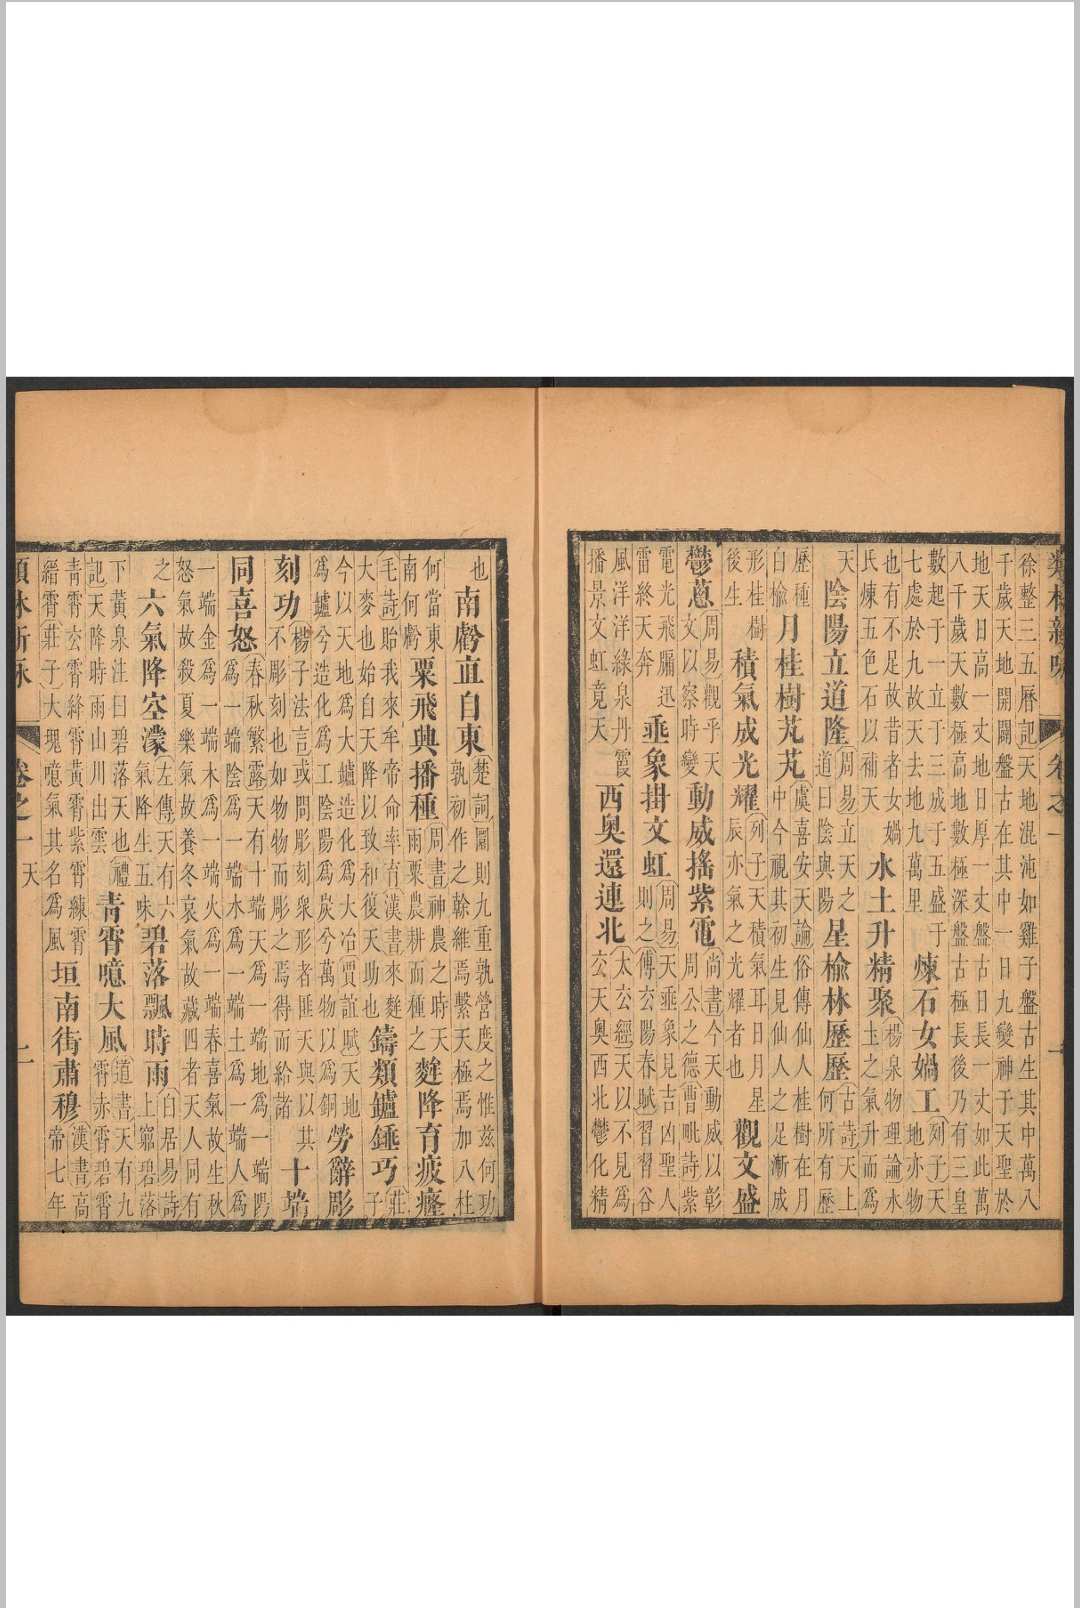 類林新咏 卷之一
徐整三五曆記天地混沌如雞子盤古生其中萬八
千歲天地開闢盤古在其中一日九變神于天聖於
地天日高一丈地日厚一丈盤古日長一丈如此萬
八千歲天數極高地數極深盤古極長後乃有三皇
數起于一立于三成于五盛于
七處於九故天去地九萬里
煉石女媧工
列子天
地亦物
也有不足故昔者女媧
氏煉五色石以補天
水土升精聚
楊泉物理論水
土之氣升而爲
天
陰陽立道隆
周易立天之
道曰陰與陽
星楡林歷歷
古詩天上
何所有歷
歷種
白楡
月桂樹芃芃
虞喜安天論俗傳仙人桂樹在月
中今視其初生見仙人之足漸成
形桂樹
後生
積氣成光耀
列子天積氣耳日月星
辰亦氣之光耀者也
觀文盛
鬱蔥
周易觀乎天
文以察時變
動威搖紫電
尚書今天動威以彰
周公之德曹毗詩紫
電光飛驪迅
雷終天奔
乖象掛文虹
周易天乖象見吉凶聖人
則之傅玄陽春賦習習谷
風洋洋綠泉丹霞
播景文虹竟天
西奥還連北
太公經天以不見爲
公天奥西北鬱化精
也
南虧直自東
楚詞圜則九重孰營度之惟兹何功
孰初作之斡維焉繫天極焉加八柱
何當東
南何虧
粟飛典播種
周書神農之時天
雨粟農耕而種之
麰降育疲癃
毛詩貽我來牟帝命率育漢書來麰
大麥也始自天降以致和復天功也
鑄類鑪錘巧
莊
子
今以天地爲大鑪造化爲大冶賈誼賦天地
爲鑪兮造化爲工陰陽爲炭兮萬物以爲銅
勞辭彫
刻功
楊子法言或問彫刻衆形者匪天與以其
不彫刻也如物物而彫之焉得而給諸
十端
同喜怒
春秋繁露天有十端天爲一端地爲一端陽
爲一端陰爲一端水爲一端土爲一端人爲
一端金爲一端木爲一端火爲一端春喜氣故生秋
怒氣故殺夏樂氣故養冬哀氣故藏四者天人同有
之
六氣降空濛
左傳天有六
氣降生五味
碧落飄時雨
白居易詩
上窮碧落
下黃泉注曰碧落天也禮
記天降時雨山川出雲
青霄噫大風
道書天有九
霄赤霄碧霄
青霄玄霄絳霄黃霄紫霄練霄
縉霄莊子大塊噫氣其名爲風
垣南街肅穆
漢書高
帝七年
類林新咏 卷之一 天 二